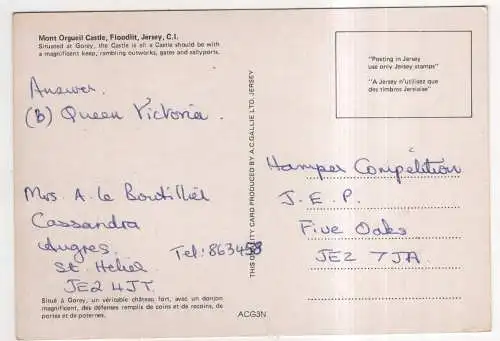 Mont Orgueil Castle, Floodlit, Jersey, C.I.
Situated at Gorey, the Castle is all a Castle should be with
a magnificent keep, rambling outworks, gates and sallyports.
Answer.
(B) Queen Victoria.
Mrs A. le Boutillier
Cassandra
Augres
St. Helier Tel: 863458
JE2 4JT.
Situé à Gorey, un véritable château fort, avec un donjon
magnifique, des défenses remplis de coins et de recoins, de
portes et de poternes.
THIS QUALITY CARD PRODUCED BY A.C.GALLIE LTD. JERSEY
"Posting in Jersey
use only Jersey stamps"
"A Jersey n'utilisez que
des timbres Jersiaise"
Hamper Competition
J.E.P.
Five Oaks
JE2 7JA
ACG3N